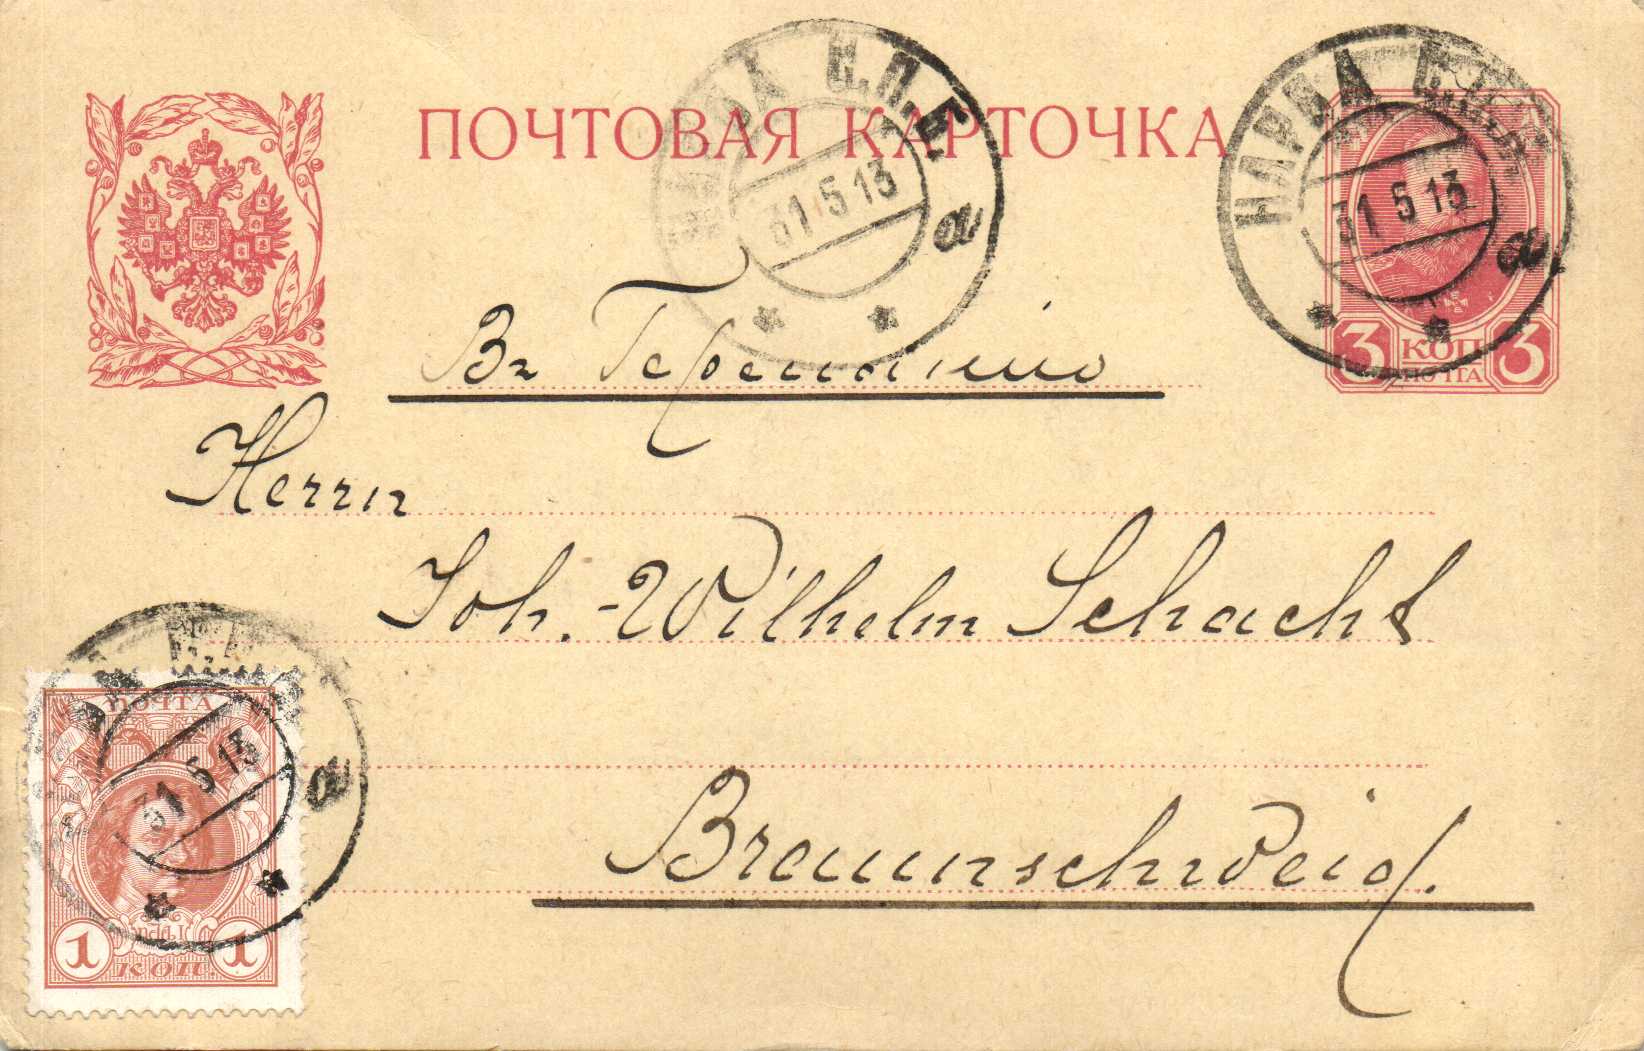 ПОЧТОВАЯ КАРТОЧКА
НАРВА С.П.Б.
31 5 13
а
НАРВА С.П.Б.
31 5 13
а
3 КОП 3
ПОЧТА
Въ Германію
Herrn
Joh.-Wilhelm Schacht
Braunschweig.
31 5 13
а
ПОЧТА
1 1
КОП.